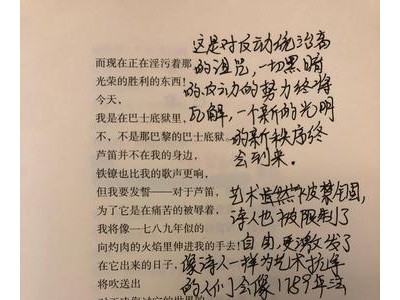 而现在正在淫污着那
光荣的胜利的东西！
今天，
我是在巴士底狱里，
不、不是那巴黎的巴士底狱。
芦笛并不在我的身边，
铁镣也比我的歌声更响，
但我要发誓——对于芦笛，
为了它是在痛苦的被辱着，
我将像一七八九年似的
向灼肉的火焰里伸进我的手去！
在它出来的日子，
将吹送出
这是对反动统治高
的诅咒，一切黑暗
的反动的努力终将
瓦解，一个新的光明
的新秩序终
会到来。
艺术虽然被禁锢，
诗人也被服制了
自由，更激发了
像诗人一样为艺术抗争
的人们会像1789年法